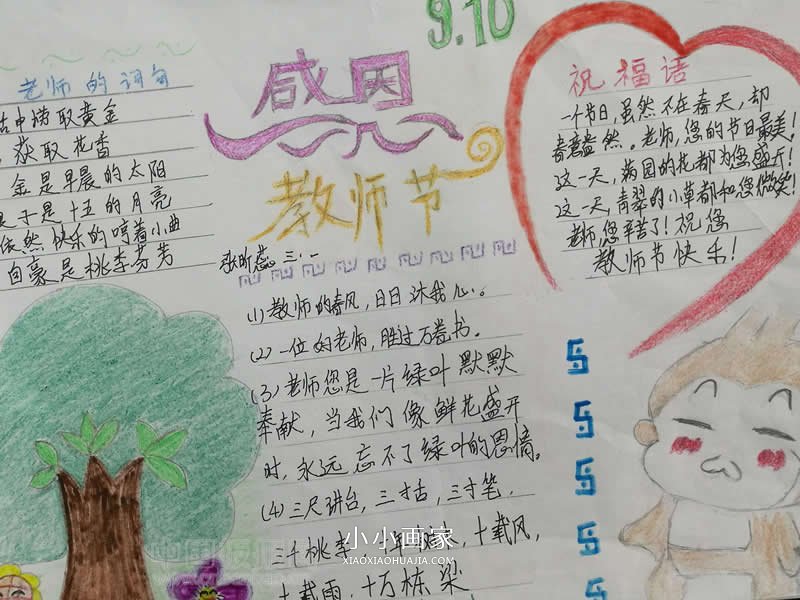 9.10
感恩
教师节
老师的词句
中撷取黄金
获取花香
金是早晨的太阳
是十五的月亮
依然快乐的哼着小曲
自豪是桃李芬芳
祝福语
一个节日,虽然不在春天,却
春意盎然。老师,您的节日最美!
这一天,满园的花都为您盛开!
这一天,青翠的小草都和您微笑!
老师,您辛苦了!祝您
教师节快乐!
三.一
(1)教师的春风,日日沐我心。
(2)一位好老师,胜过万卷书。
(3)老师您是一片绿叶默默
奉献,当我们像鲜花盛开
时,永远忘不了绿叶的恩情。
(4)三尺讲台,三寸舌,三寸笔,
三千桃李 十载风,
十载雨,十万栋梁
小小画家
XIAOXIAOHUAJIA.COM